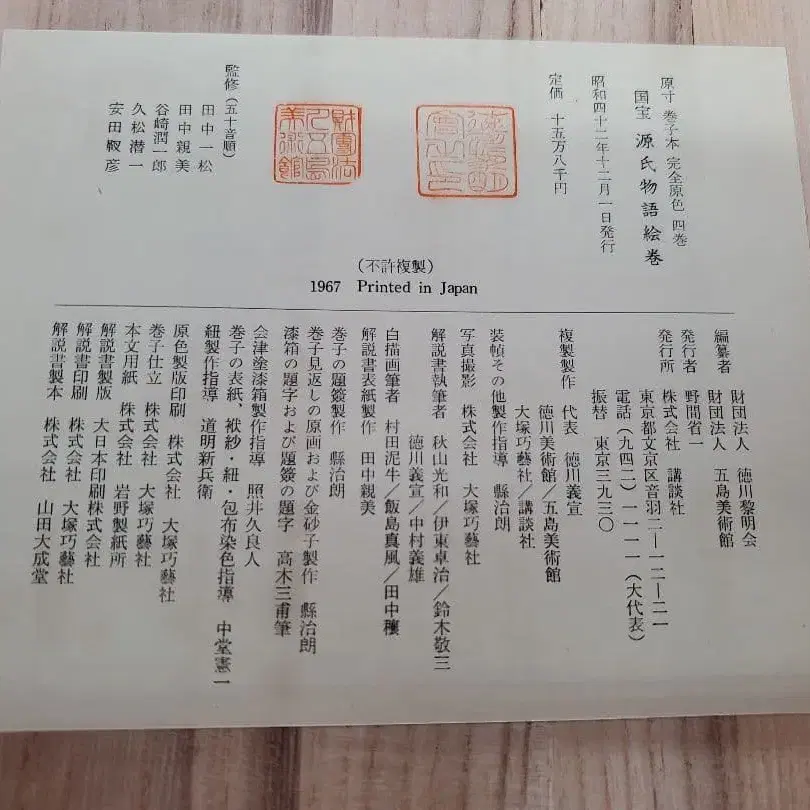 原寸 巻子本 完全原色 四巻
国宝 源氏物語絵巻
昭和四十二年十二月一日発行
定価 十五万八千円
財団法人五島美術館
監修(五十音順)
田中一松
田中親美
谷崎潤一郎
久松潜一
安田靫彦
(不許複製)
1967 Printed in Japan
編纂者 財団法人 徳川黎明会
財団法人 五島美術館
発行者 野間省一
発行所 株式会社 講談社
東京都文京区音羽二—一二—二一
電話(九四二)一一一一(大代表)
振替 東京三九三〇
複製製作 代表 徳川義宣
徳川美術館/五島美術館
大塚巧藝社/講談社
装幀その他製作指導 縣治朗
写真撮影 株式会社 大塚巧藝社
解説書執筆者 秋山光和/伊東卓治/鈴木敬三
徳川義宣/中村義雄
白描画筆者 村田泥牛/飯島真風/田中穰
解説書表紙製作 田中親美
巻子の題簽製作 縣治朗
巻子見返しの原画および金砂子製作 縣治朗
漆箱の題字および題簽の題字 高木三甫筆
会津塗漆箱製作指導 照井久良人
巻子の表紙、袱紗・紐・包布染色指導 中堂憲一
紐製作指導 道明新兵衛
原色製版印刷 株式会社 大塚巧藝社
巻子仕立 株式会社 大塚巧藝社
本文用紙 株式会社 岩野製紙所
解説書製版 大日本印刷株式会社
解説書印刷 株式会社 大塚巧藝社
解説書製本 株式会社 山田大成堂